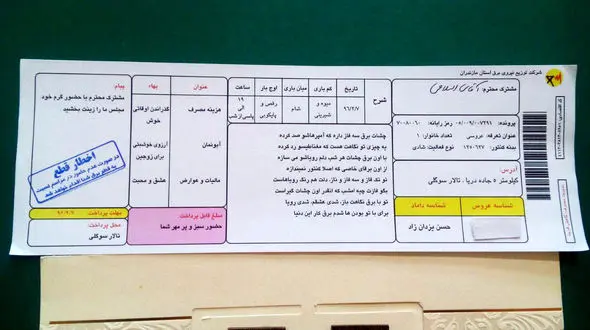 شرکت توزیع نیروی برق استان مازندران
مشترک محترم: آقای اسلامی
پرونده: ۰۵/۰۹/۰۰۷۲۹۱ رمز رایانه: ۷۰۰۸۰۶۰
عنوان تعرفه: عروسی تعداد خانوار: ۱
بدنه کنتور: ۱۲۵۰۶۳۷ نوع فعالیت: شادی
آدرس:
کیلومتر ۶ جاده دریا، تالار سوگلی
شناسه عروس
شناسه داماد
حسن یزدان زاد
شرح
تاریخ
کم باری
میان باری
اوج بار
ساعت
۹۶/۲/۷
میوه و شیرینی
شام
رقص و پایکوبی
۱۹ الی پاسی از شب
چشات برق سه فاز داره که آمپرهاشو صد کرده
یه چیزی تو نگاهت هست که مخناطیسو رد کرده
با اون برق چشات هر شب دلم رویاشو می سازه
از اون برقای خاصی که اصلا کنتور نمیندازه
تو تک فاز و سه فاز و تار، دات هم رنگ رویاهاست
بگو فازت چیه امشب که انقدر اون چشات گیراست
تو با برق نگاهت باز، شدی هشتم، شدی رویا
برای با تو بودن ها شدم برق کار این دنیا
عنوان
بهاء
هزینه مصرف
گذراندن اوقاتی خوش
آبونمان
آرزوی خوشبختی برای زوجین
مالیات و عوارض
عشق و محبت
مبلغ قابل پرداخت:
حضور سبز و پر مهر شما
پیام:
مشترک محترم با حضور گرم خود
مجلس ما را زینت بخشید
اخطار قطع
در صورت عدم حضور در مراسم نسبت
به قطع برق شما اقدام خواهد شد
مهلت پرداخت: ۹۶/۲/۷
محل پرداخت:
تالار سوگلی